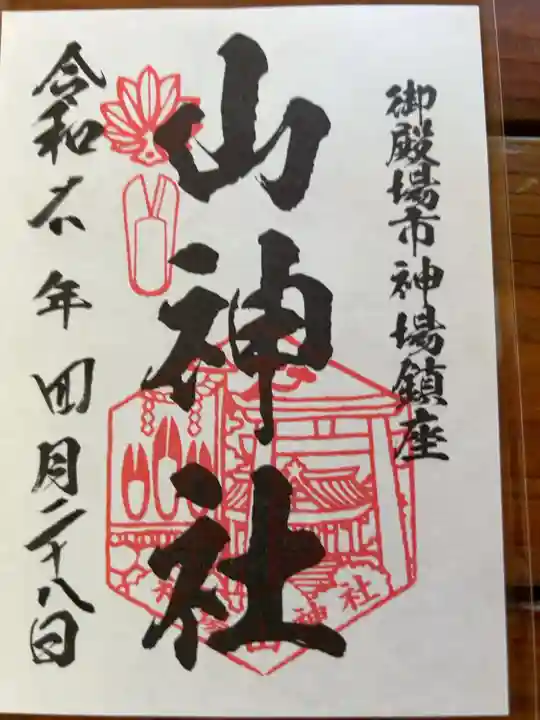 御殿場市神場鎮座
山神社
令和年四月二十八日
神社